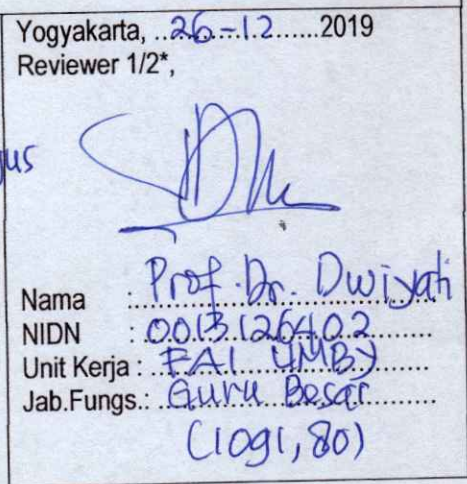 Yogyakarta, ..26-12......2019
Reviewer 1/2*,
Nama : Prof. Dr. Dwiyati
NIDN : 0013126402
Unit Kerja : FAI UMBY
Jab.Fungs.: Guru Besar
(1091,80)